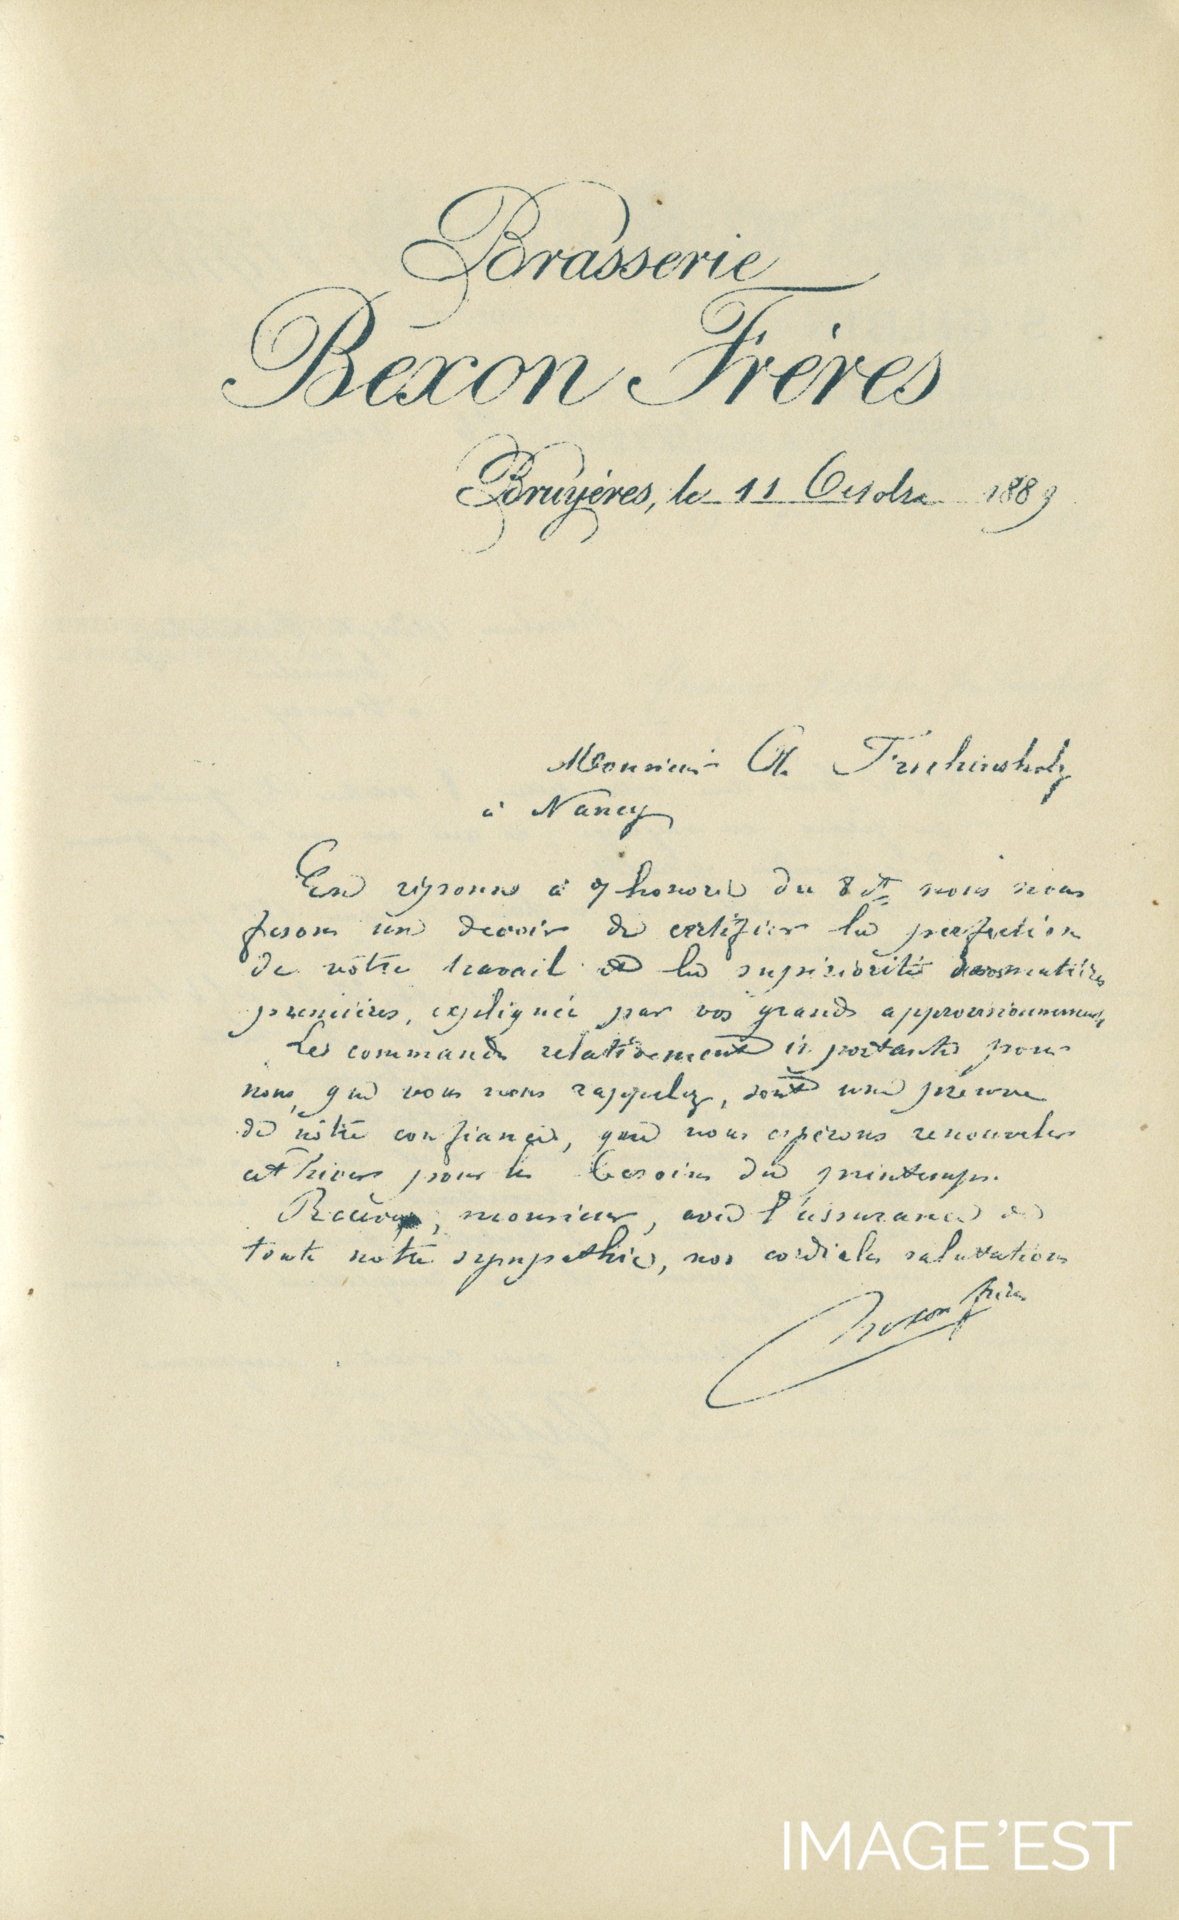 Brasserie
Bexon Frères
Bruyères, le 11 Octobre 1889
Monsieur A. Fruhinsholz
à Nancy
En réponse à honorée du 8 ct nous nous
fesons un devoir de certifier la perfection
de votre travail et la supériorité de vos matières
premières, expliquée par vos grands approvisionnements
Les commandes relativement importantes pour
nous, que vous nous rappelez, sont une preuve
de nôtre confiance, que nous espérons renouveler
cet hiver pour les besoins du printemps.
Recevez, monsieur, avec l'assurance de
toute notre sympathie, nos cordiales salutations
Bexon frères
IMAGE'EST